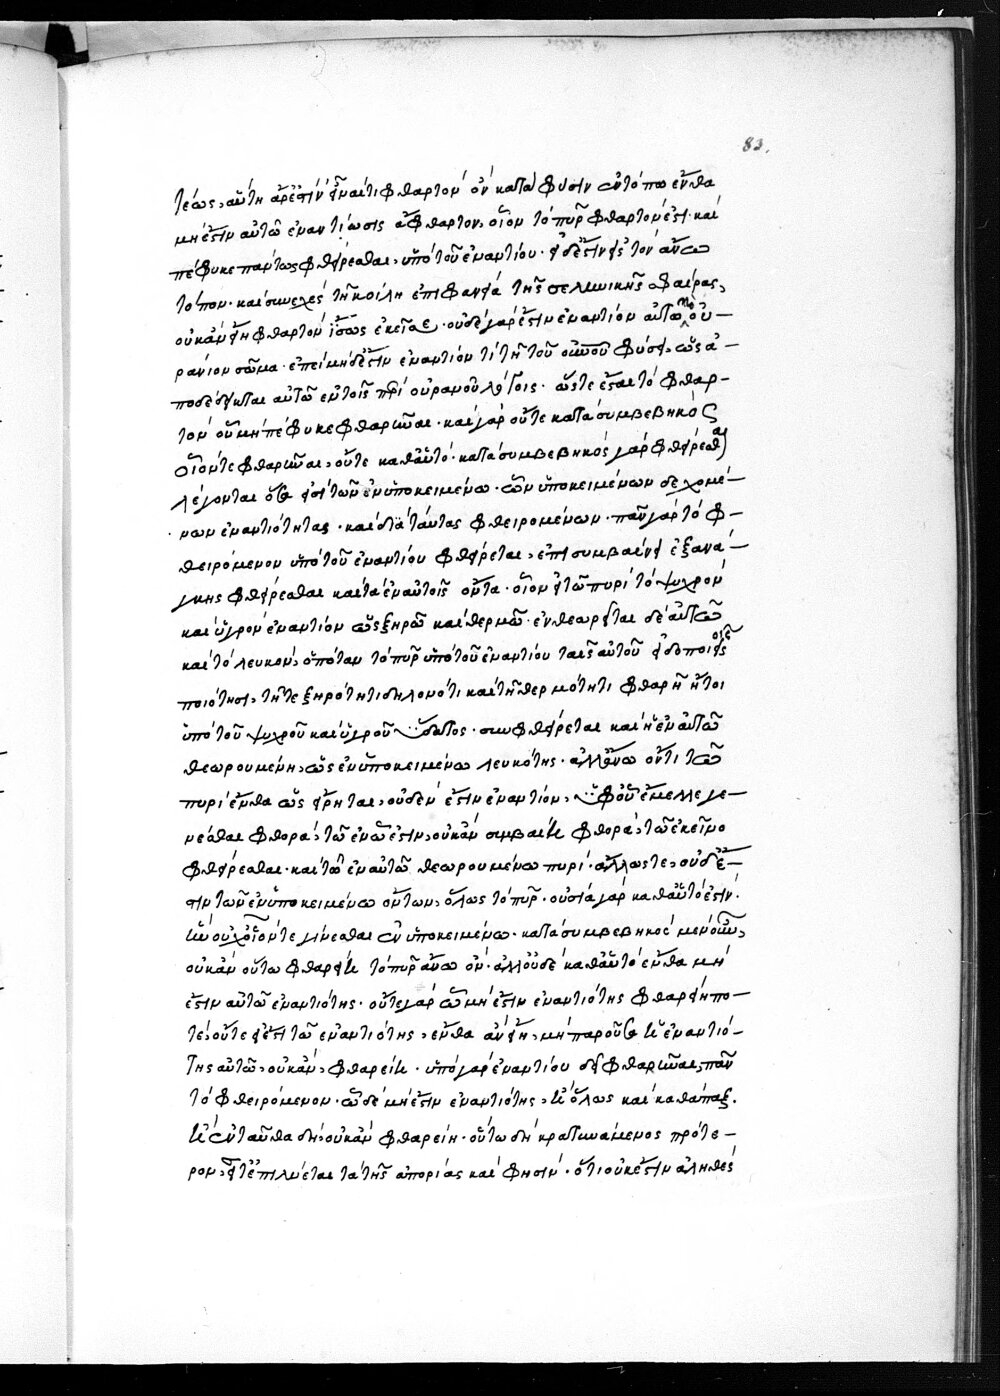 83.
τέως, αὕτη ἆρ' ἐστὶν εἶναί τι φθαρτὸν ὂν κατὰ φύσιν ἐν τόπῳ ἔνθα
μή ἐστιν αὐτῷ ἐναντίωσις ἄφθαρτον, οἷον τὸ πῦρ φθαρτόν ἐστι· καὶ
πέφυκε πάντως φθείρεσθαι, ὑπὸ τοῦ ἐναντίου· εἰ δέ ἐστιν εἰς τὸν ἄνω
τόπον· καὶ συνεχὲς τῇ κοίλῃ ἐπιφανείᾳ τῆς σεληνιακῆς σφαίρας,
οὐκ ἂν εἴη φθαρτὸν ἴσως ἐκεῖσε· οὐδὲ γάρ ἐστιν ἐναντίον αὐτῷ τὸ οὐ-
ράνιον σῶμα· ἐπεὶ μηδέ ἐστιν ἐναντίον τι τῇ τοῦ οὐρανοῦ φύσει, ὡς ἀ-
ποδέδεικται αὐτῷ ἐν τοῖς περὶ οὐρανοῦ λόγοις· ὥστε ἔσται τὸ φθαρ-
τὸν οὗ μὴ πέφυκε φθαρῆναι· καὶ γὰρ οὔτε κατὰ συμβεβηκὸς
οἷόν τε φθαρῆναι, οὔτε καθ' αὑτό· κατὰ συμβεβηκὸς γὰρ φθείρεσθαι
λέγονται ὅσα ἐστὶ τῶν ἐν ὑποκειμένῳ· τῶν ὑποκειμένων δεχομέ-
νων ἐναντιότητας· καὶ διὰ ταύτας φθειρομένων· πᾶν γὰρ τὸ φ-
θειρόμενον ὑπὸ τοῦ ἐναντίου φθείρεται, ἐπισυμβαίνει ἐξ ἀνά-
γκης φθείρεσθαι καὶ τὰ ἐν αὐτοῖς ὄντα· οἷον εἰ τῷ πυρὶ τὸ ψυχρὸν
καὶ ὑγρὸν ἐναντίον ὡς ξηρῷ καὶ θερμῷ· ἐνθεωρεῖται δὲ αὐτῷ
καὶ τὸ λευκὸν, ὁπόταν τὸ πῦρ ὑπὸ τοῦ ἐναντίου ταῖς αὐτοῦ εἰδοποιοῖς
ποιότησι, τῇ τε ξηρότητι δηλονότι καὶ τῇ θερμότητι φθαρῇ ἤτοι
ὑπὸ τοῦ ψυχροῦ καὶ ὑγροῦ ὕδατος· συμφθείρεται καὶ ἡ ἐν αὐτῷ
θεωρουμένη, ὡς ἐν ὑποκειμένῳ λευκότης· ἀλλ' ἄνω ὄντι τῷ
πυρὶ ἔνθα ὡς εἴρηται, οὐδέν ἐστιν ἐναντίον, ὑφ' οὗ ἔμελλε γε-
νέσθαι φθορά, τῷ ἐν ᾧ ἐστιν, οὐκ ἂν συμβαίη φθορά, τῷ ἐκεῖνο
φθείρεσθαι· καὶ τῷ ἐν αὐτῷ θεωρουμένῳ πυρί· ἄλλως τε, οὐδέ ἐ-
στιν τῶν ἐν ὑποκειμένῳ ὄντων, ὅλως τὸ πῦρ· οὐσία γὰρ καθ' αὑτό ἐστιν·
ἣν οὐχ οἷόν τε γίνεσθαι ἐν ὑποκειμένῳ· κατὰ συμβεβηκὸς μὲν οὖν,
οὐκ ἂν οὕτω φθαρείη τὸ πῦρ ἄνω ὄν· ἀλλ' οὐδὲ καθ' αὑτὸ ἔνθα μή
ἐστιν αὐτῷ ἐναντιότης· οὔτε γὰρ ᾧ μή ἐστιν ἐναντιότης φθαρείη πο-
τέ, οὔτε εἰ ἔστι τῷ ἐναντιότης, ἔνθα ἂν εἴη, μὴ παροῦσα ἡ ἐναντιό-
της αὐτῷ, οὐκ ἂν, φθαρείη· ὑπὸ γὰρ ἐναντίου δεῖ φθαρῆναι, πᾶν
τὸ φθειρόμενον· ᾧ δὲ μή ἐστιν ἐναντιότης, ἢ ὅλως καὶ καθάπαξ·
ἢ ἐνταῦθα δή, οὐκ ἂν φθαρείη· οὕτω δὴ κρατυνάμενος πρότε-
ρον, εἶτ' ἐπιλύεται τὰ τῆς ἀπορίας καὶ φησίν· ὅτι οὐκ ἔστιν ἀληθὲς